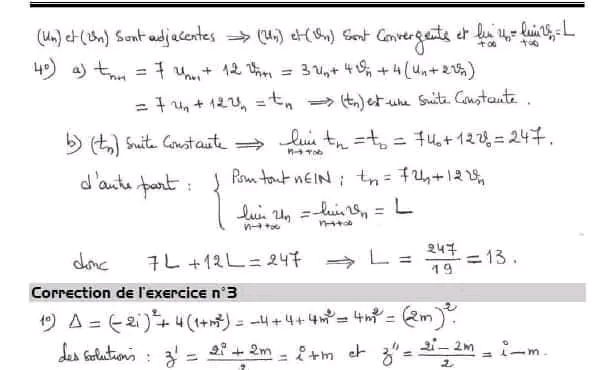 (Un) et (Vn) Sont adjacentes ⟹ (Un) et (Vn) Sont Convergents et lim Un = lim Vn = L
+∞ +∞
4°) a) tn+1 = 7 Un+1 + 12 Vn+1 = 3Un + 4Vn + 4(Un + 2Vn)
= 7Un + 12Vn = tn ⟹ (tn) est une Suite Constante.
b) (tn) Suite Constante ⟹ lim tn = t0 = 7U0 + 12V0 = 247.
n→+∞
d'autre part : { Pour tout n∈IN ; tn = 7Un + 12Vn
lim Un = lim Vn = L
n→+∞ n→+∞
donc 7L + 12L = 247 ⟹ L = 247/19 = 13.
Correction de l'exercice n°3
1°) Δ = (-2i)² + 4(1+m²) = -4 + 4 + 4m² = 4m² = (2m)².
des solutions : z' = 2i + 2m/2 = i+m et z'' = 2i - 2m/2 = i-m.